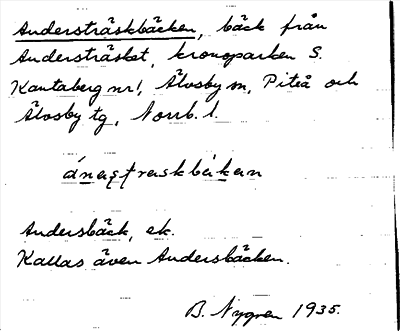 Andersträskbäcken, bäck från
Andersträsket, kronoparken S.
Kantaberg nr 1, Älvsby sn, Piteå och
Älvsby tg, Norrb. l.
ánastraskbäkan
Andersbäck, ek.
Kallas även Andersbäcken.
B. Nygren 1935.